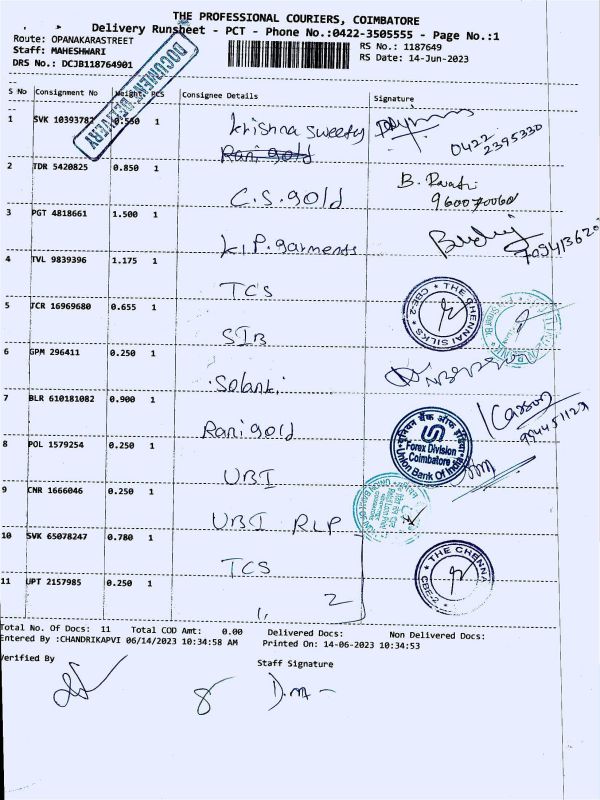 THE PROFESSIONAL COURIERS, COIMBATORE
Delivery Runsheet - PCT - Phone No.:0422-3505555 - Page No.:1
Route: OPANAKARASTREET
Staff: MAHESHWARI
DRS No.: DCJB118764901
RS No.: 1187649
RS Date: 14-Jun-2023
DOCUMENT DELIVERY
S No Consignment No Weight PCS Consignee Details Signature
1 SVK 10393787 0.550 1 Krishna Sweets
Rani gold
0422
2395330
2 TDR 5420825 0.850 1 C.S. gold
B.
960070060
3 PGT 4818661 1.500 1 K.P. garments
4 TVL 9839396 1.175 1 TCS
THE CHENNAI SILKS * CBE-2 *
5 TCR 16969680 0.655 1 SIB
6 GPM 296411 0.250 1 Solanki
7 BLR 610181082 0.900 1 Rani gold
यूनियन बैंक ऑफ इंडिया
Forex Division
Coimbatore
Union Bank Of India
8 POL 1579254 0.250 1 UBI
9 CNR 1666046 0.250 1 UBI RLP
10 SVK 65078247 0.780 1 TCS
THE CHENNA
CBE-2 *
11 UPT 2157985 0.250 1 " 2
Total No. Of Docs: 11 Total COD Amt: 0.00 Delivered Docs: Non Delivered Docs:
Entered By :CHANDRIKAPVI 06/14/2023 10:34:58 AM Printed On: 14-06-2023 10:34:53
Verified By
Staff Signature